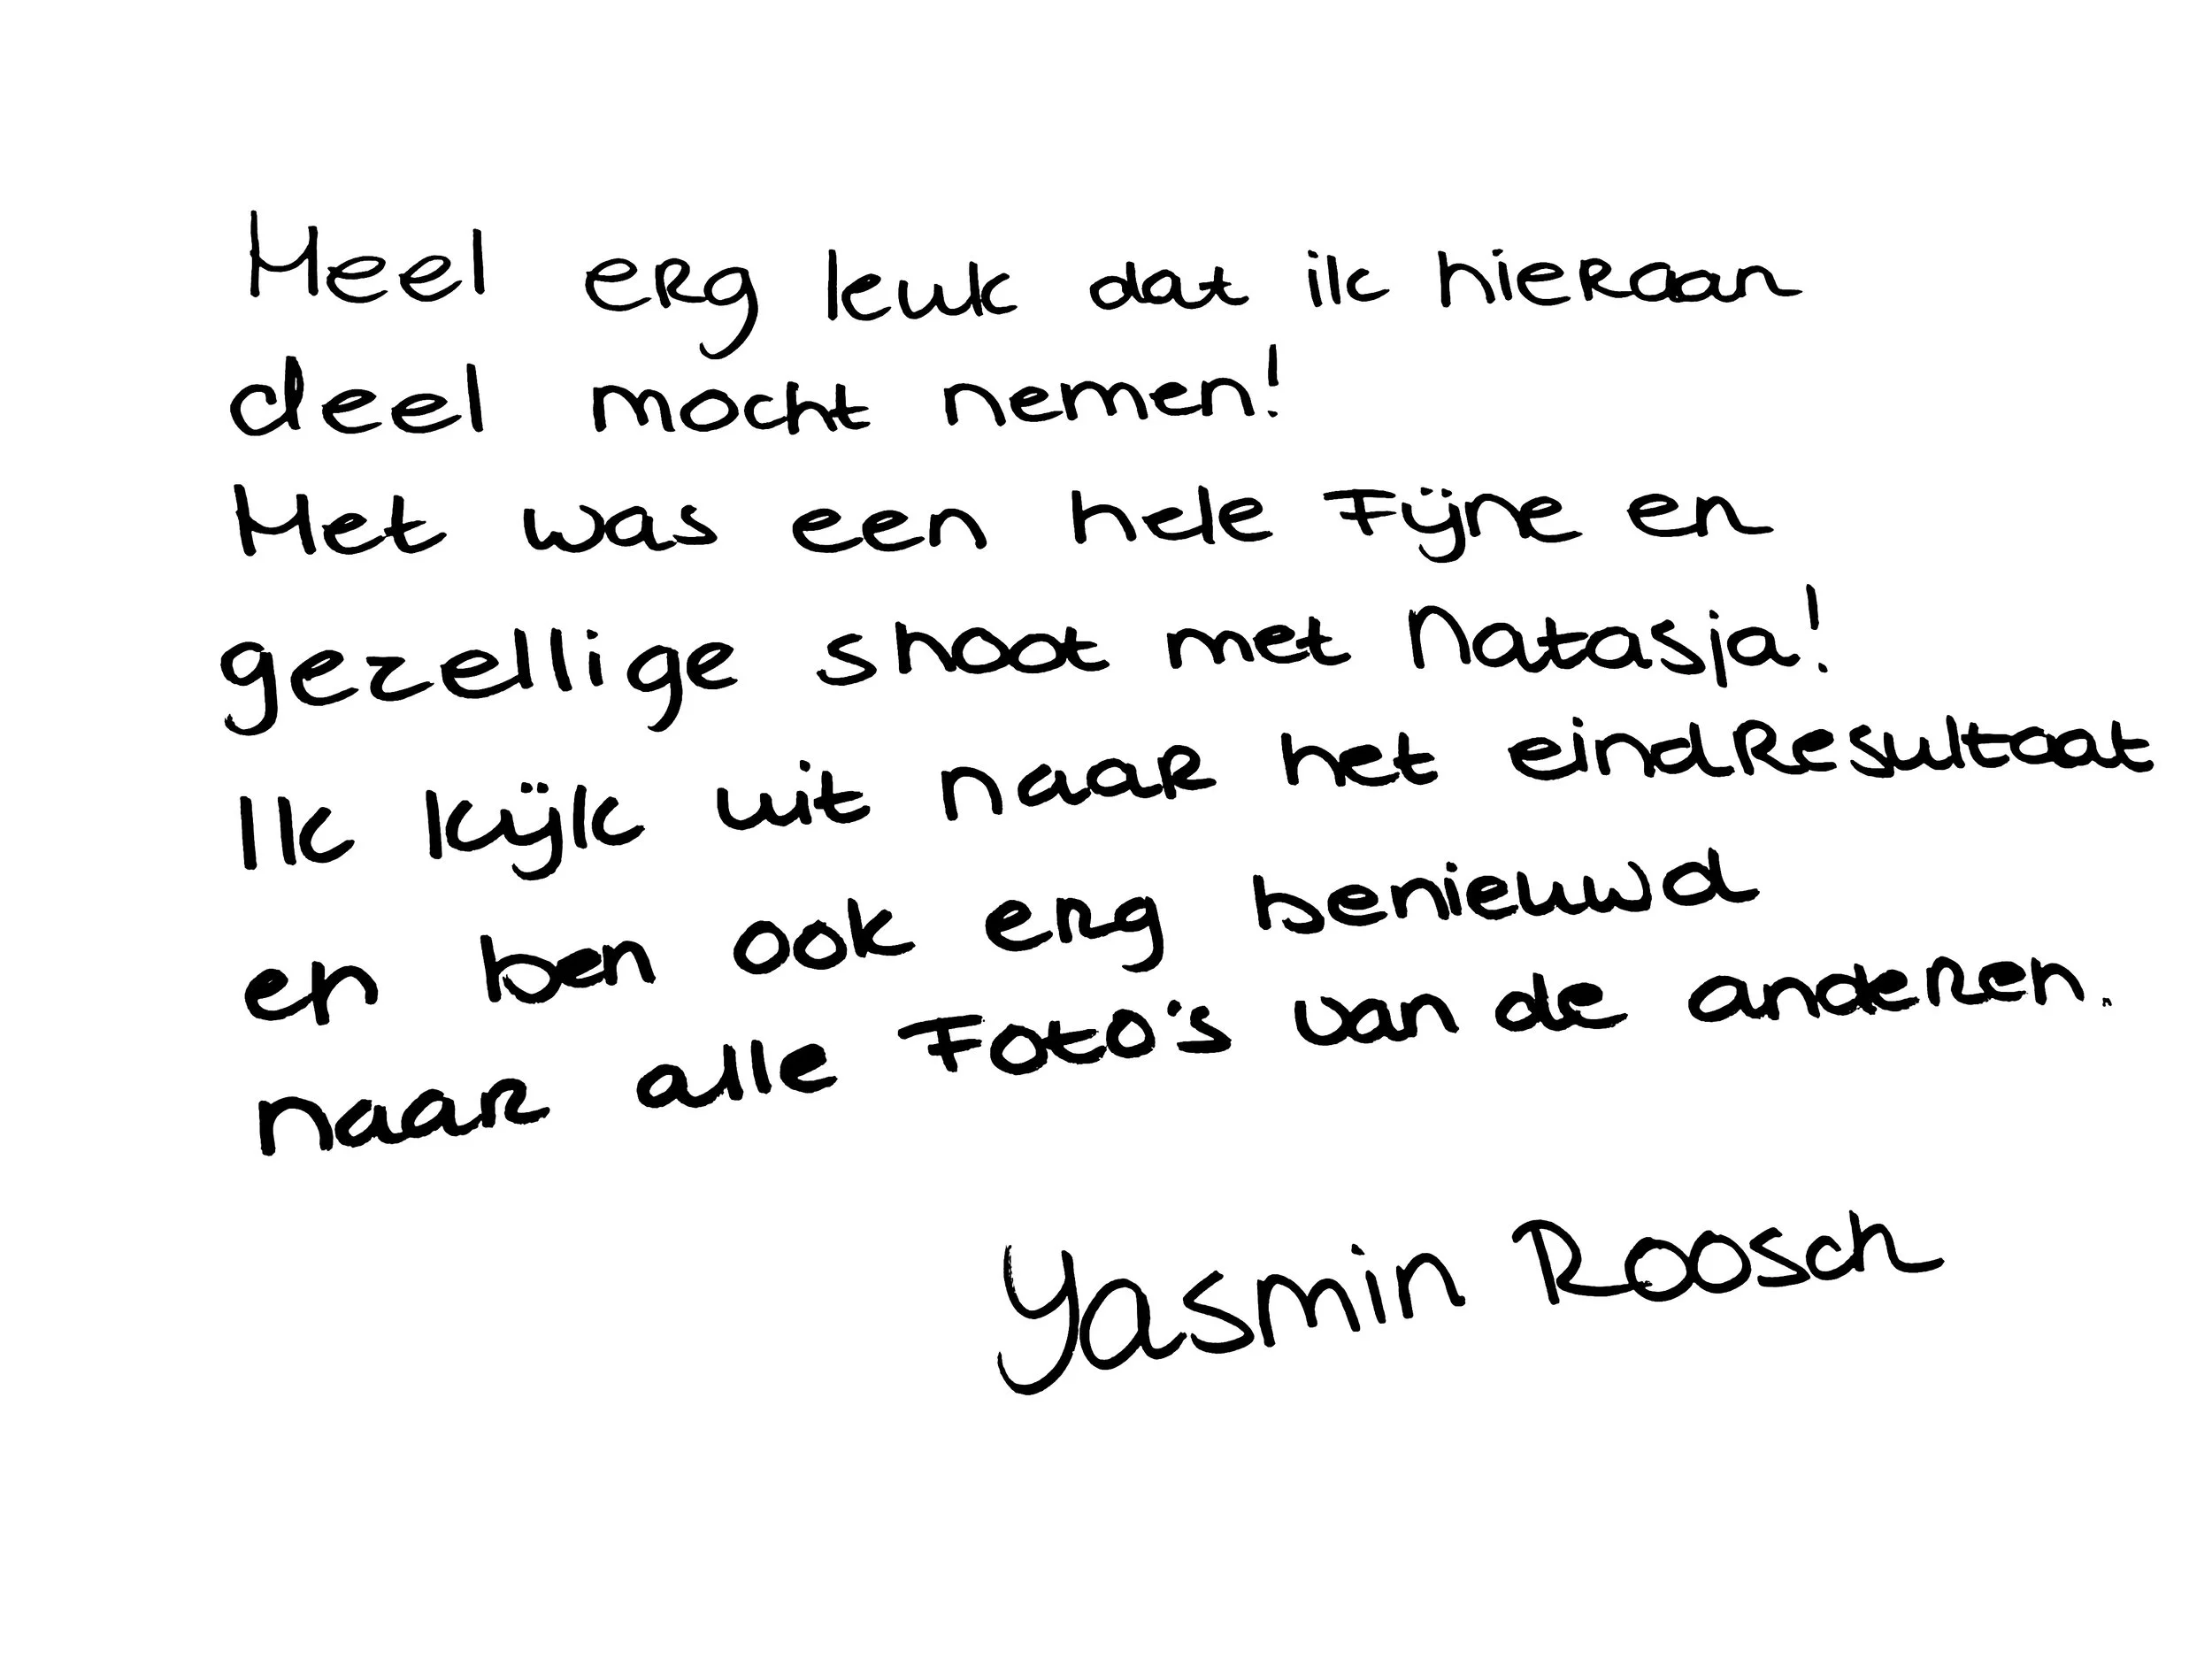 Heel erg leuk dat ik hieraan
deel mocht nemen!
Het was een hele fijne en
gezellige shoot met Natasja!
Ik kijk uit naar het eindresultaat
en ben ook erg benieuwd
naar alle foto's van de anderen.
Yasmin Roosch